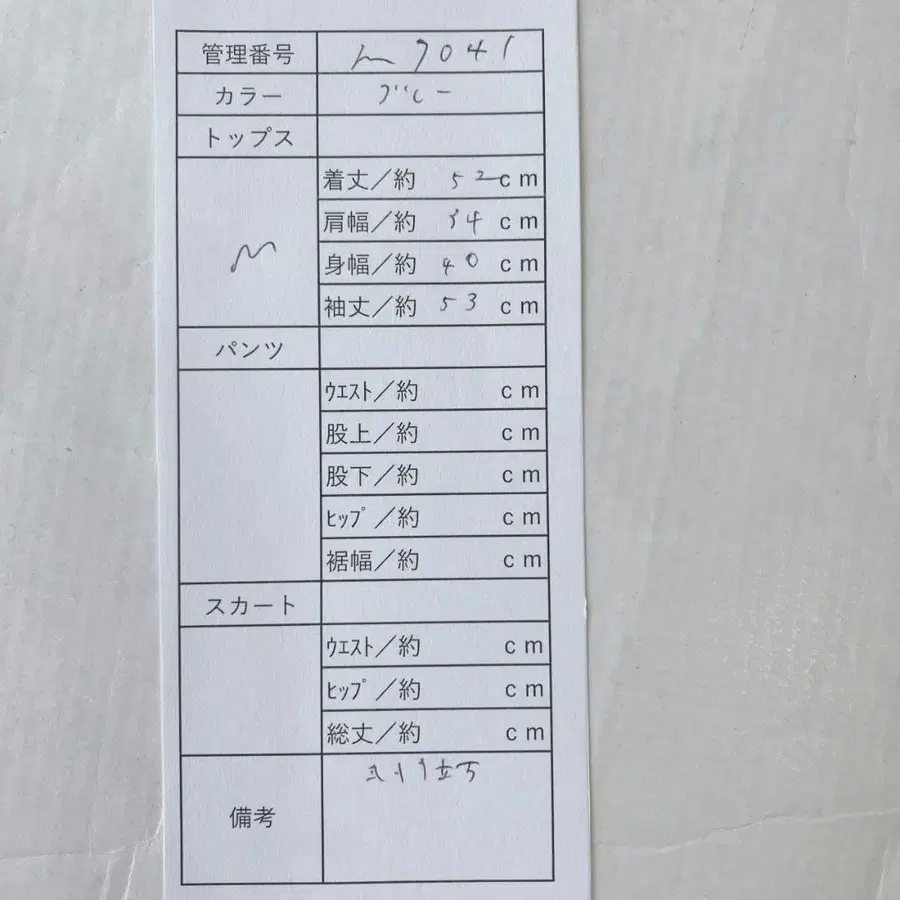 管理番号 m 7041
カラー ブルー
トップス
M
着丈／約 52 cm
肩幅／約 34 cm
身幅／約 40 cm
袖丈／約 53 cm
パンツ
ｳｴｽﾄ／約 cm
股上／約 cm
股下／約 cm
ﾋｯﾌﾟ／約 cm
裾幅／約 cm
スカート
ｳｴｽﾄ／約 cm
ﾋｯﾌﾟ／約 cm
総丈／約 cm
備考